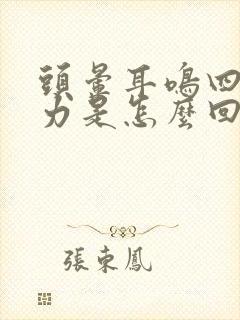 頭暈耳鳴四
力是怎麼回
張東鳳